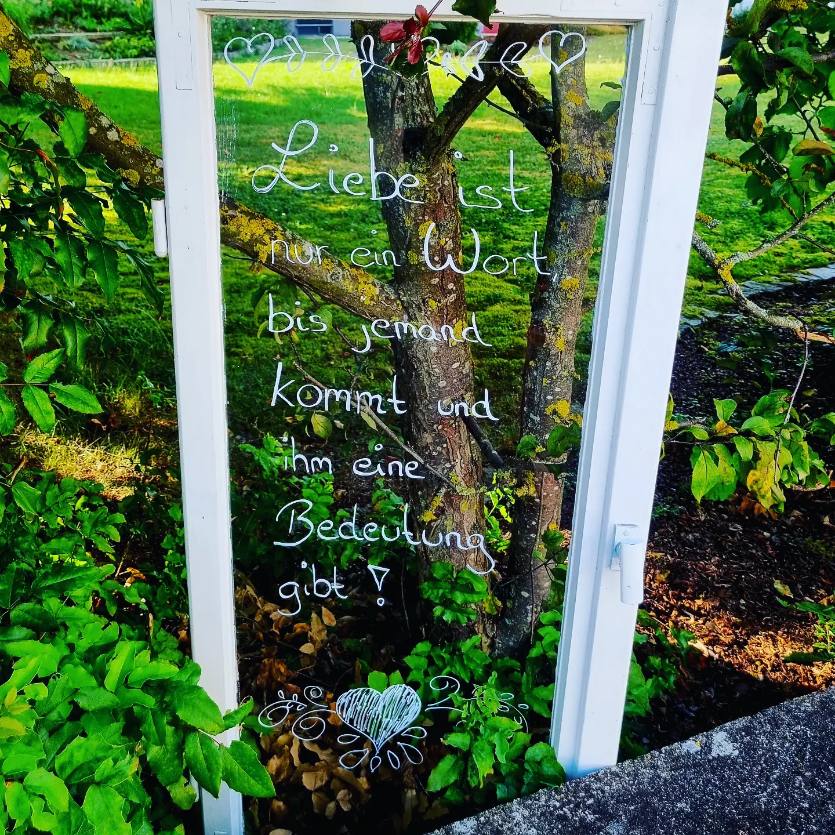 Liebe ist
nur ein Wort,
bis jemand
kommt und
ihm eine
Bedeutung
gibt !